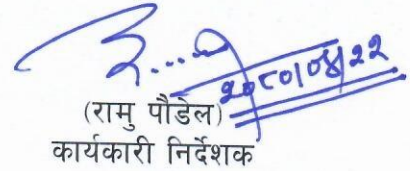 २०८०।०४।२२
(रामु पौडेल)
कार्यकारी निर्देशक